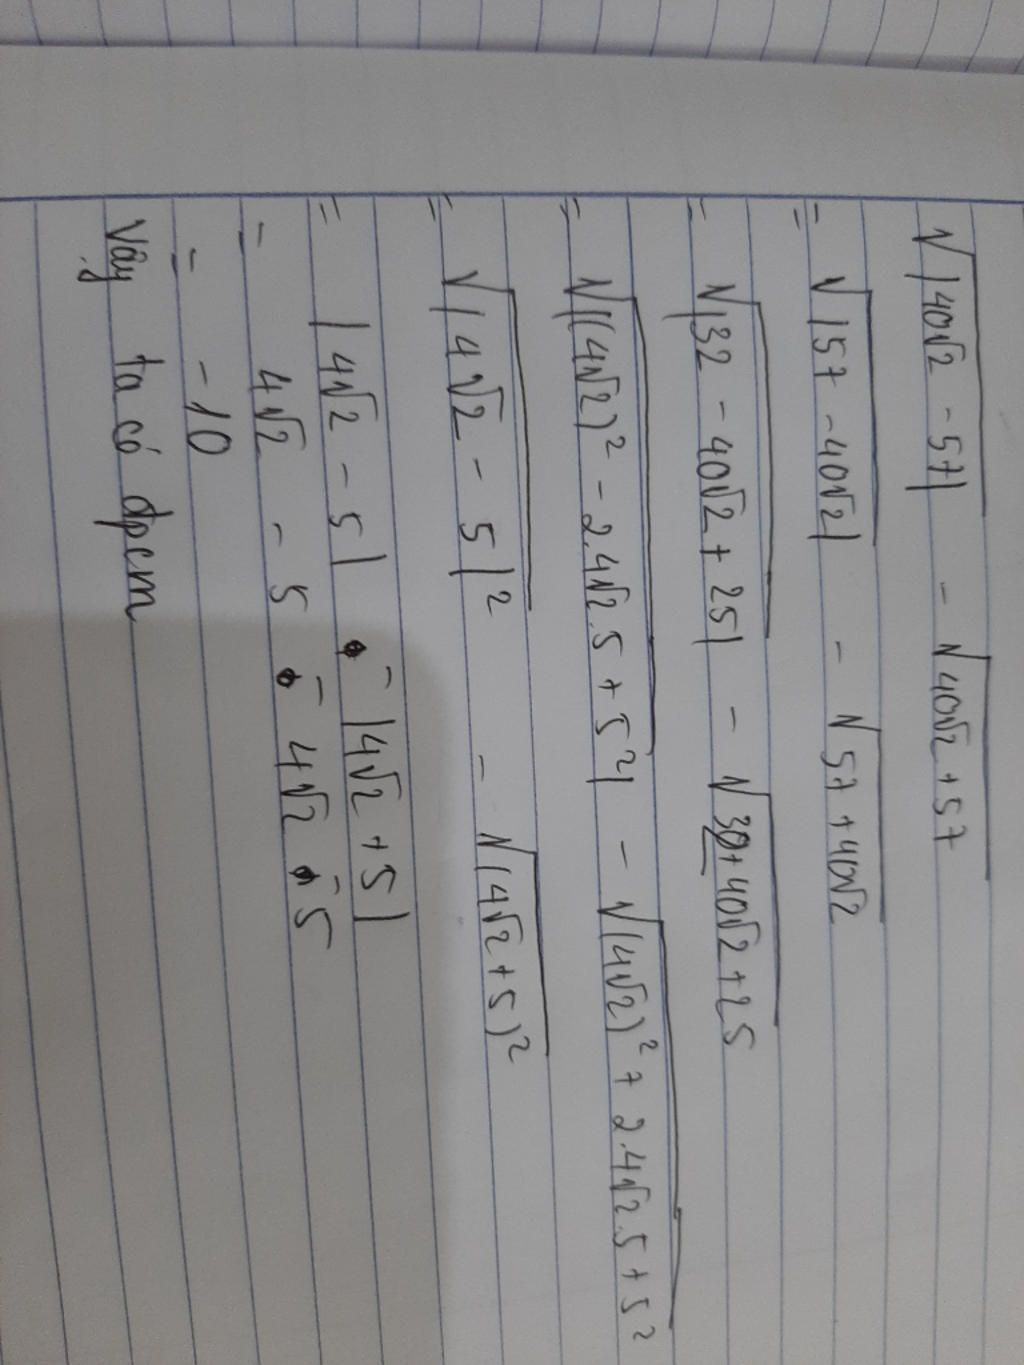 √|40√2 - 57| - √40√2 + 57
= √|57 - 40√2| - √57 + 40√2
= √|32 - 40√2 + 25| - √32 + 40√2 + 25
= √|(4√2)² - 2.4√2.5 + 5²| - √(4√2)² + 2.4√2.5 + 5²
= √|4√2 - 5|² - √(4√2 + 5)²
= |4√2 - 5| - |4√2 + 5|
= 4√2 - 5 - 4√2 - 5
= - 10
Vậy ta có đpcm